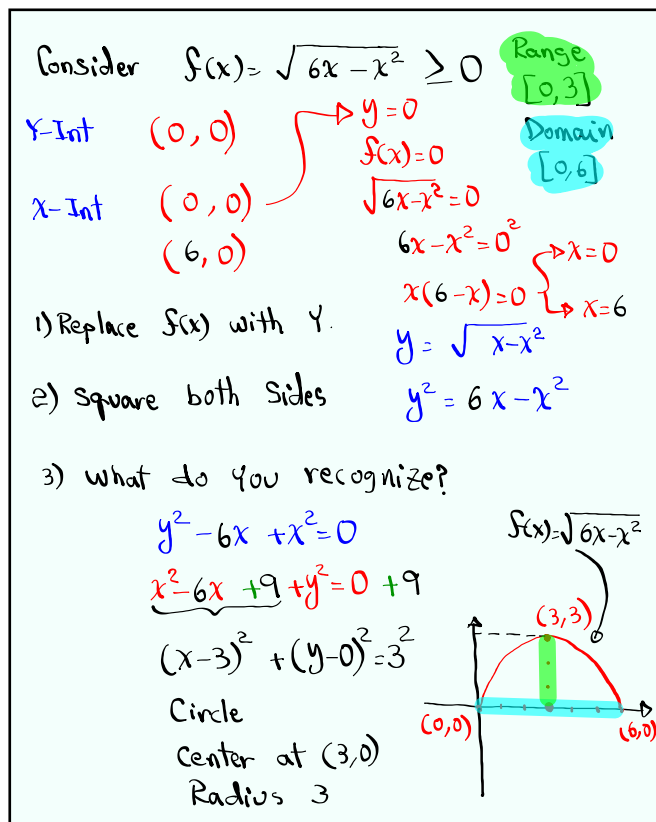 Consider f(x)= √(6x-x²) ≥ 0 Range
[0,3]
Y-Int (0,0) y=0 Domain
f(x)=0 [0,6]
X-Int (0,0) √(6x-x²)=0
(6,0) 6x-x²=0²
x(6-x)=0 x=0
x=6
1) Replace f(x) with Y. y= √(x-x²)
2) Square both Sides y² = 6x-x²
3) What do you recognize?
y²-6x+x²=0
x²-6x+9+y²=0+9
(x-3)²+(y-0)²=3²
Circle
Center at (3,0)
Radius 3
f(x)=√(6x-x²)
(3,3)
(0,0) (6,0)